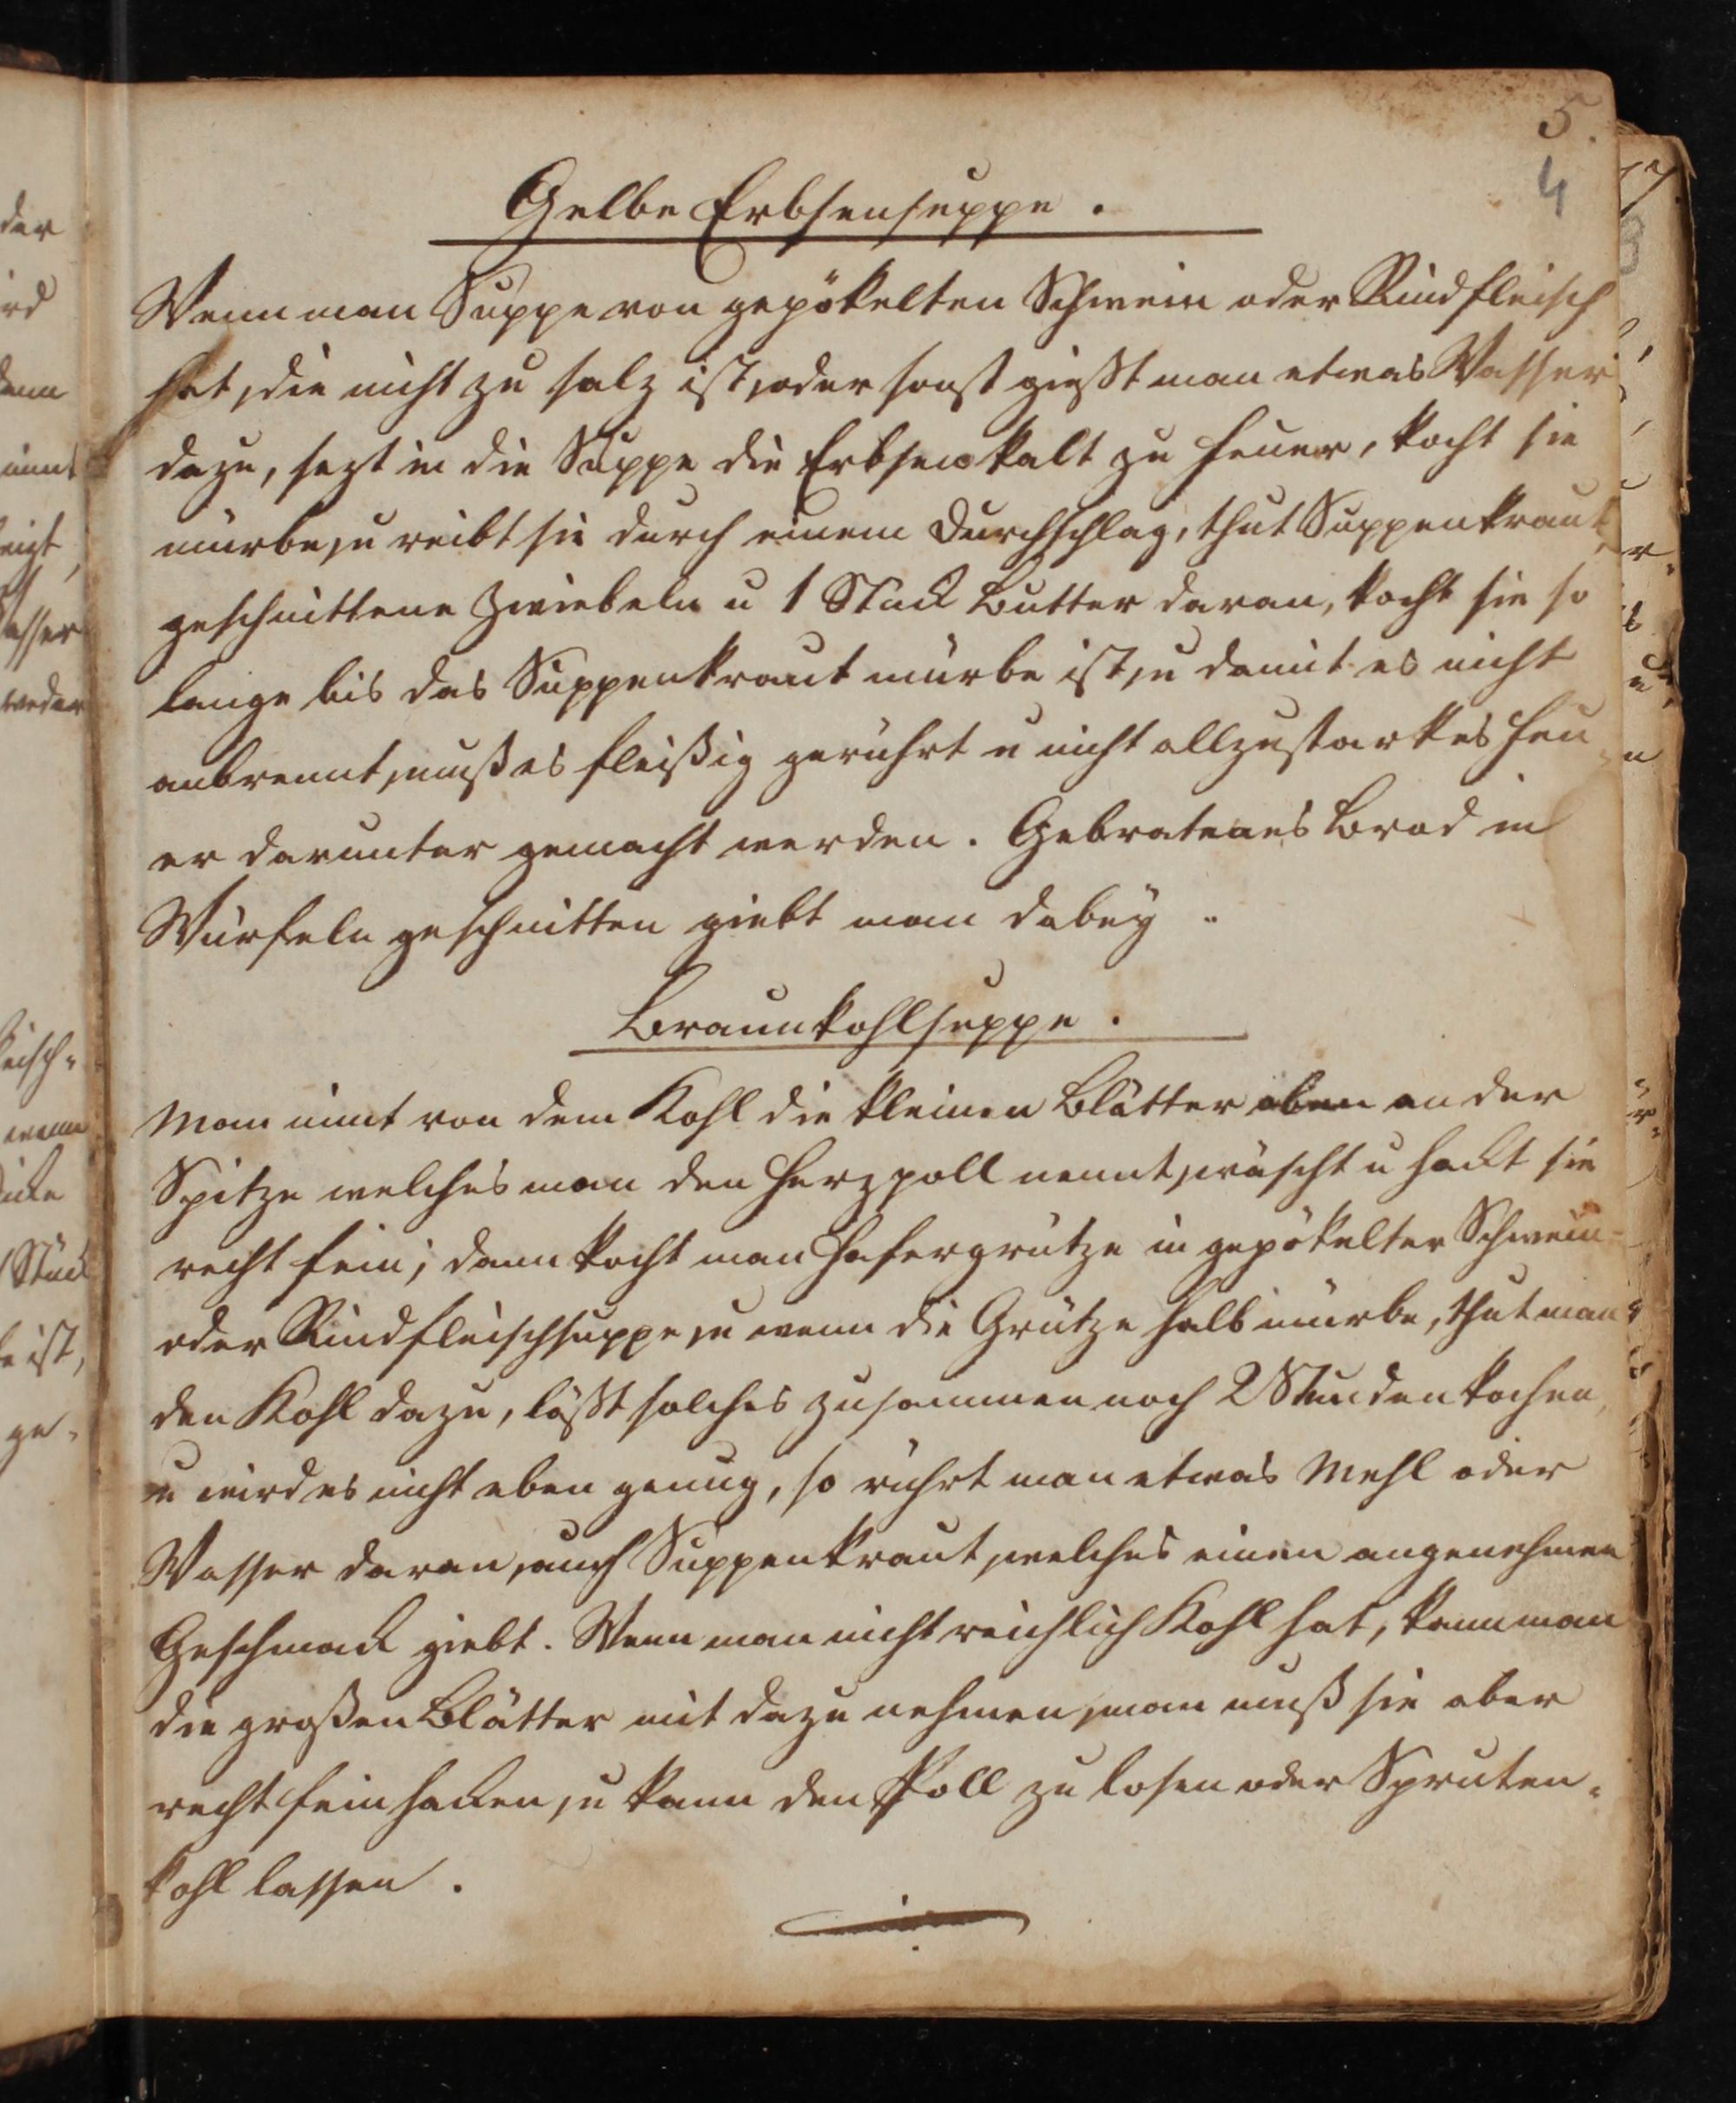 5.
4
Gelbe Erbsensuppe.
Wenn man Suppe von gepökelten Schwein oder Rindfleisch
hat, die nicht zu salz ist, oder sonst gießt man etwas Wasser
dazu, sezt in die Suppe die Erbsen kalt zu Feuer, kocht sie
mürbe, u reibt sie durch einem Durchschlag, thut Suppenkraut,
geschnittene Zwiebeln u 1 Stück Butter daran, kocht sie so
lange bis das Suppenkraut mürbe ist, u damit es nicht
anbrennt, muß es fleißig gerührt u nicht allzustarkes Feu
er darunter gemacht werden. Gebratenes Brod in
Würfeln geschnitten giebt man dabey.
Braunkohlsuppe.
Man nimt von dem Kohl die kleinen Blätter oben an der
Spitze welches man den Herzpoll nennt, wäscht u hackt sie
recht fein; dann kocht man Hafergrütze in gepökelter Schwein-
oder Rindfleischsuppe, u wenn die Grütze halb mürbe, thut man
den Kohl dazu, läßt solches zusammen noch 2 Stunden kochen,
u wird es nicht eben genug, so rührt man etwas Mehl oder
Wasser daran, auch Suppenkraut, welches einen angenehmen
Geschmack giebt. Wenn man nicht reichlich Kohl hat, kann man
die großen Blätter mit dazu nehmen, man muß sie aber
recht fein hacken, u kann den Poll zu losen oder Spruten-
kohl lassen.